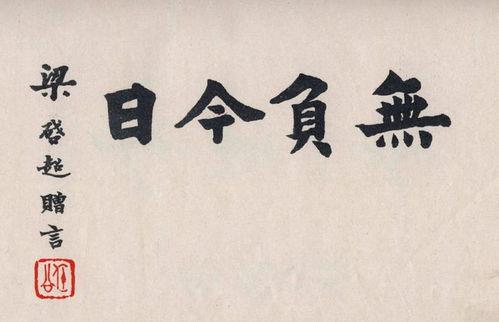 無負今日
梁啓超贈言